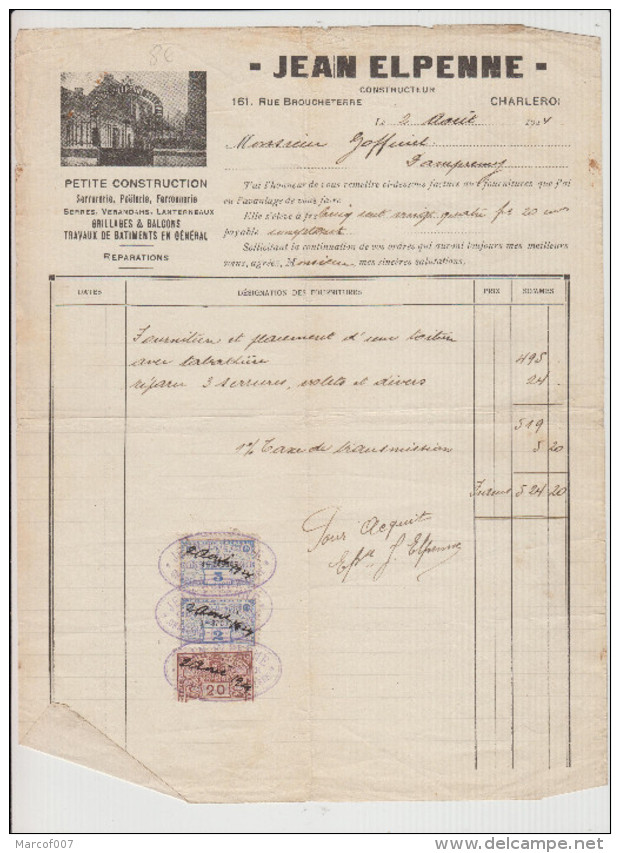 8€
- JEAN ELPENNE -
CONSTRUCTEUR
161, RUE BROUCHETERRE CHARLEROI
Le 2 Août 1924
Monsieur Goffinet
Dampremy
PETITE CONSTRUCTION
Serrurerie, Poëlerie, Ferronnerie
SERRES, VERANDAHS, LANTERNEAUX
GRILLAGES & BALCONS
TRAVAUX DE BATIMENTS EN GÉNÉRAL
REPARATIONS
J'ai l'honneur de vous remettre ci-dessous facture des fournitures que j'ai
eu l'avantage de vous faire
Elle s'élève à frs cinq cent vingt quatre frs 20 cmes
payable comptant
Sollicitant la continuation de vos ordres qui auront toujours mes meilleurs
soins, agréez, Monsieur mes sincères salutations.
DATES DÉSIGNATION DES FOURNITURES PRIX SOMMES
Fourniture et placement d'une toiture
avec tabatière 495
réparer 3 serrures, volets et divers 24
519
1% Taxe de transmission 5 20
Francs 524 20
Pour Acquit
J. Elpenne
2 Août 1924
3
2 Août 1924
2
2 Août 1924
20
Marcof007 delcampe.net